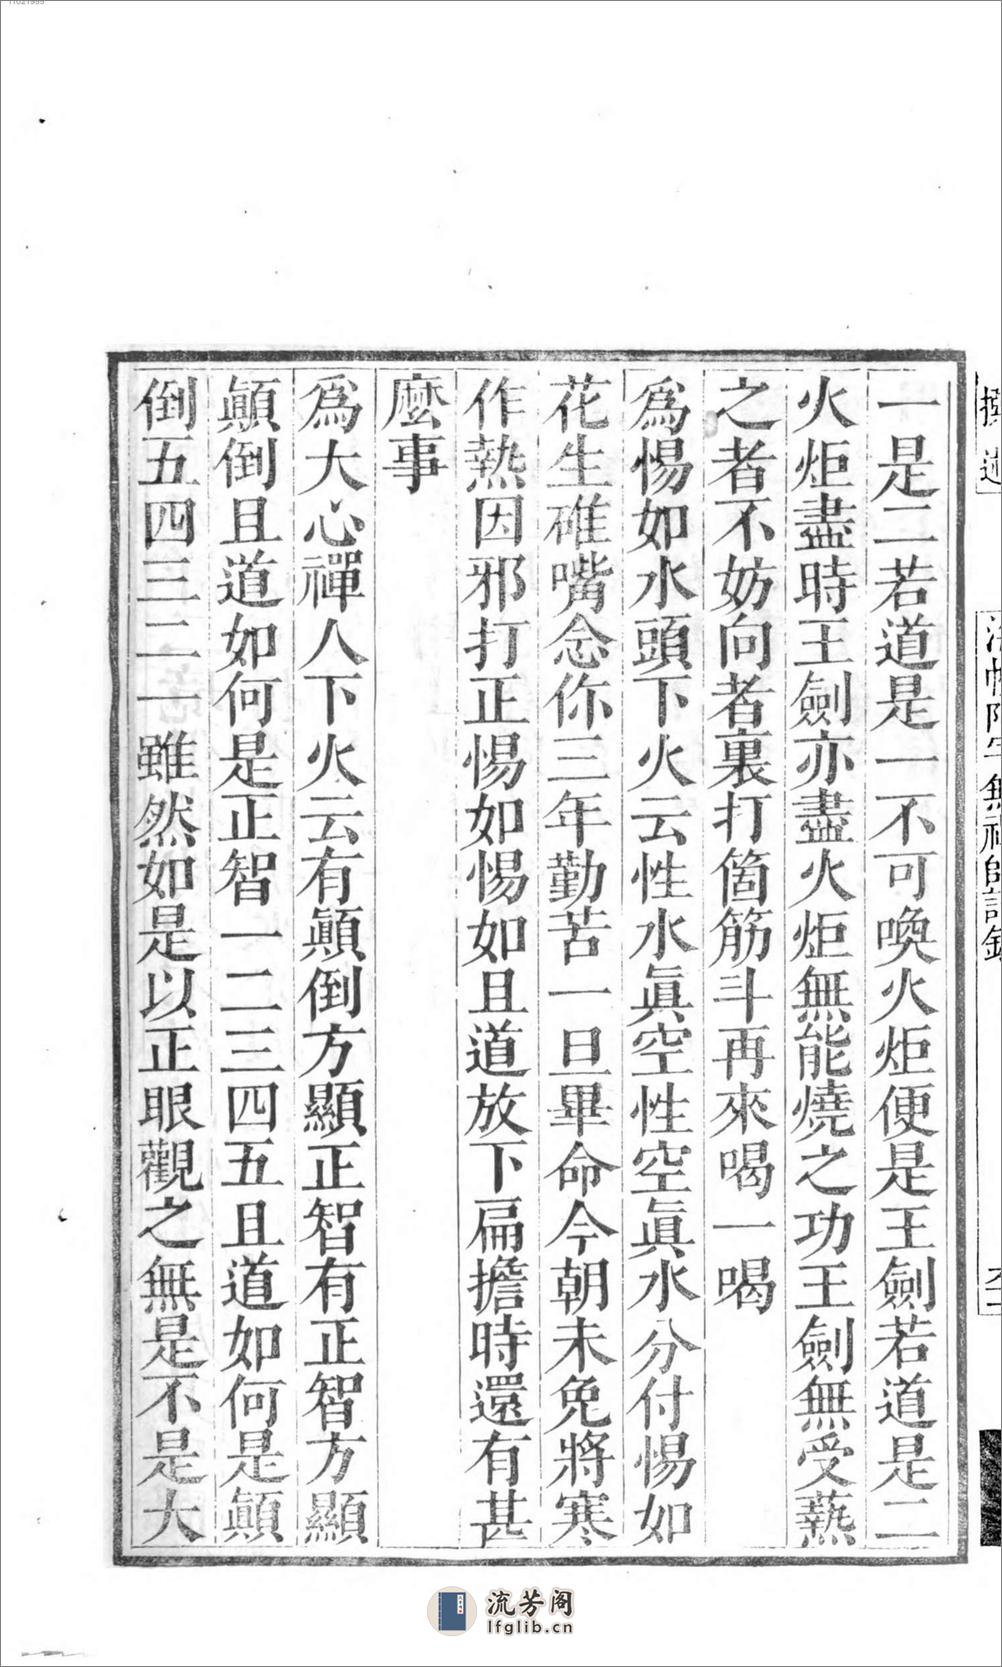 一是二若道是一不可喚火炬便是王劍若道是二
火炬盡時王劍亦盡火炬無能燒之功王劍無受爇
之者不妨向者裏打箇筋斗再來喝一喝
爲惕如水頭下火云性水眞空性空眞水分付惕如
花生碓嘴念你三年勤苦一旦畢命今朝未免將寒
作熱因邪打正惕如惕如且道放下扁擔時還有甚
麼事
爲大心禪人下火云有顚倒方顯正智有正智方顯
顚倒且道如何是正智一二三四五且道如何是顚
倒五四三二一雖然如是以正眼觀之無是不是大
流芳阁
lfglib.cn
11021995